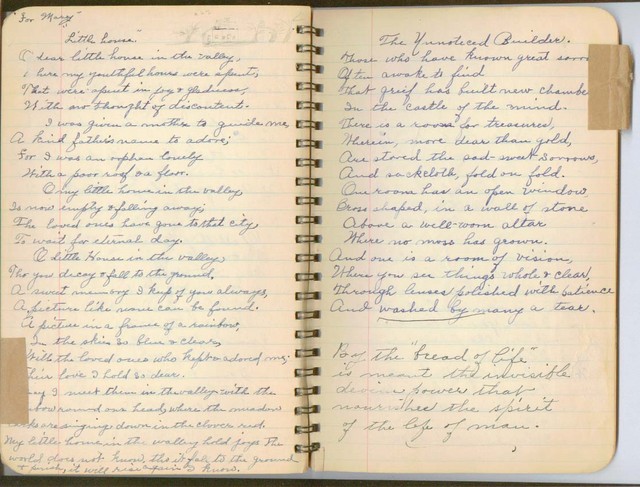 "For Mary"
"Little house."
O dear little house in the valley,
here my youthful hours were spent,
That were spent in joy & gladness,
With no thought of discontent.
I was given a mother to guide me,
A kind father's name to adore;"
For I was an orphan lonely
With a poor roof & a floor.
O my little home in the valley,
Is now empty & falling away;
The loved ones have gone to that city,
To wait for eternal day.
O little House in the valley
Tho you decay & fall to the ground,
A sweet memory I keep of you always,
A picture like none can be found.
A picture in a frame of a rainbow,
In the skies so blue & clear,
With the loved ones who kept & adored me;
Their love I hold so dear.
I meet them in the valley with the
round our head, where the meadow
are singing down in the clover red.
My little home in the valley hold joys the
world does not know, tho it fall to the ground
it will rise again I know.
The Yunoticed Builder.
Those who have known great sorrow
Often awake to find
That grief has built new chambers
In the castle of the mind.
There is a room for treasures,
Wherein, more dear than gold,
Are stored the sad-sweet sorrows,
And sackcloth, fold on fold.
One room has an open window,
Cross shaped, in a wall of stone
Above a well-worn altar
Where no moss has grown.
And one is a room of vision,
Where you see things whole & clear,
Through lenses polished with patience
And washed by many a tear.
By the "bread of life"
is meant the invisible
divine power that
nourishes the spirit
of the life of man.